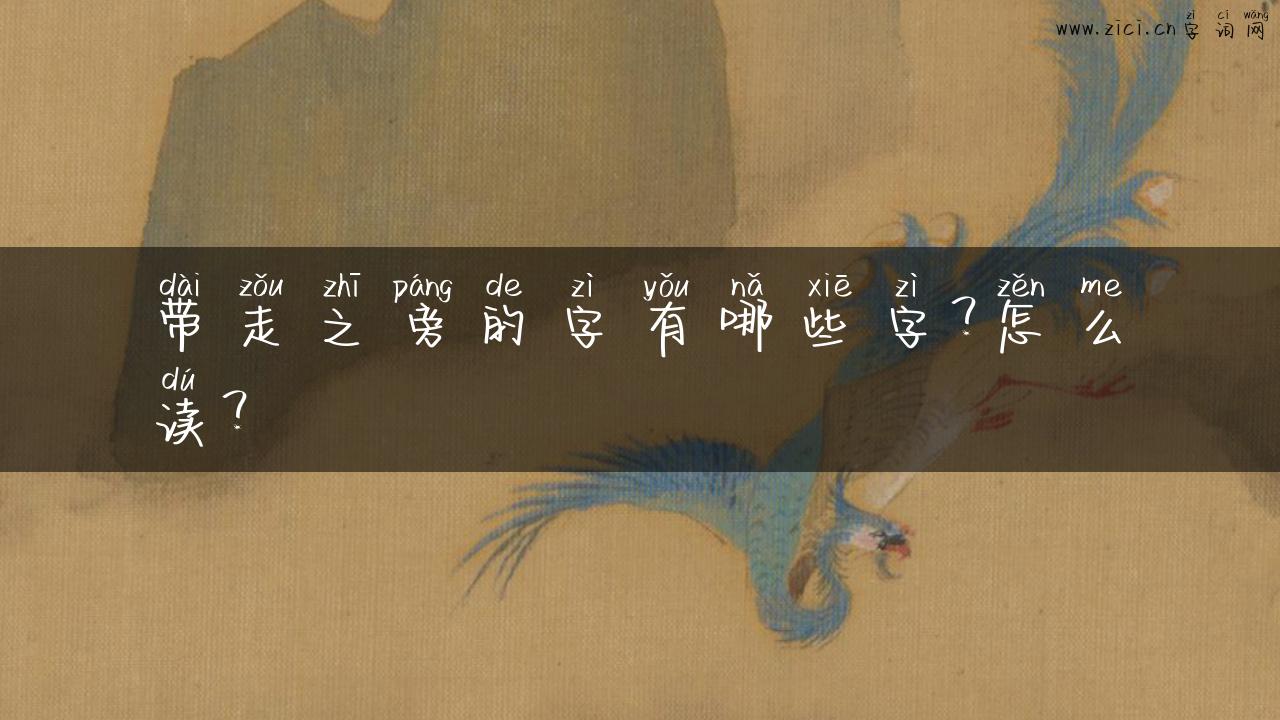 zì cí wǎng
www.zici.cn字词网
dài zǒu zhī páng de zì yǒu nǎ xiē zì zěn me
带走之旁的字有哪些字？怎么
dú
读？